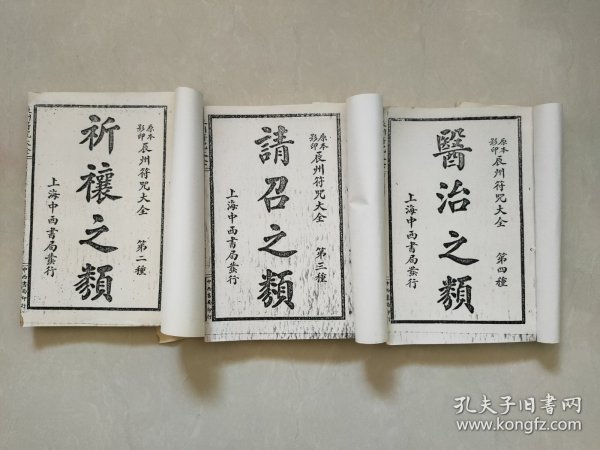 原本影印 辰州符咒大全 第二種
祈禳之類
上海中西書局發行
中西書局印行
原本影印 辰州符咒大全 第三種
請召之類
上海中西書局發行
原本影印 辰州符咒大全 第四種
醫治之類
上海中西書局發行
孔夫子旧书网
www.kongfz.com